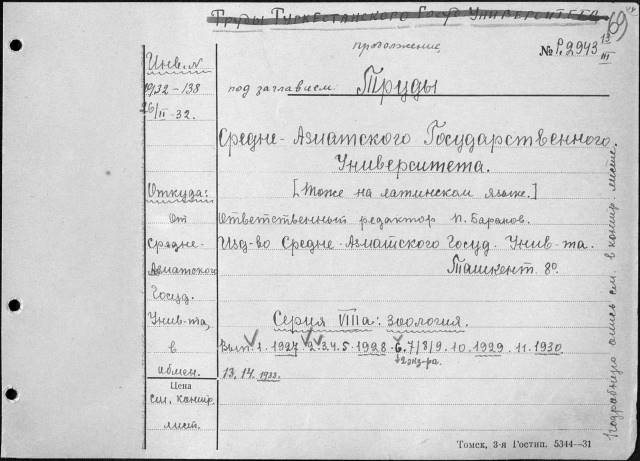 Труды Туркестанского Госуд. Университета
69
продолжение
№ Р.2943 13/III
Инв. №
9132-138
26/II-32.
под заглавием: Труды
Средне-Азиатского Государственного
Университета.
[Тоже на латинском языке.]
Откуда:
От
Средне-
Азиатского
Госуд.
Унив-та,
в
обмен.
Ответственный редактор П. Баранов.
Изд-во Средне-Азиатск. Госуд. Унив-та.
Ташкент. 8º.
Серия VIIIa: Зоология.
Вып. 1. 1927 2. 3. 4. 5. 1928. 6. 7/8/9. 10. 1929. 11. 1930
2 экз-ра.
13. 14. 1932.
Цена
см. контр.
лист.
Подробную опись см. в контр. листе.
Томск, 3-я Гостип. 5344—31